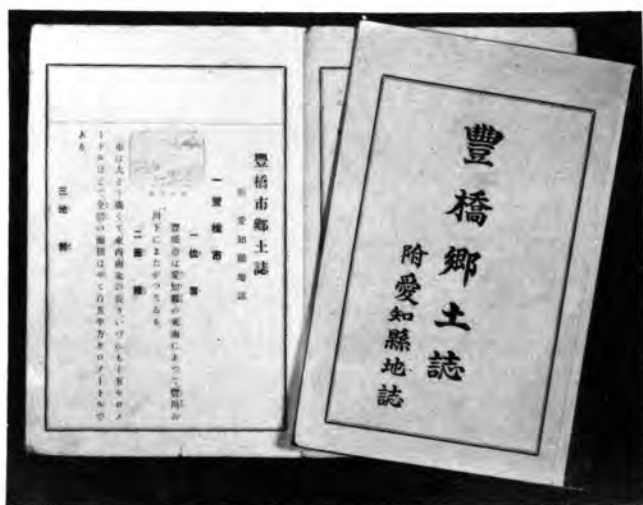 豐橋郷土誌
附愛知縣地誌
豐橋市郷土誌
附 愛知縣地誌
一 豐橋市
一 位置
豐橋市は愛知縣の東南にあつて豐川の
川下にまたがつてゐる。
二 面積
市は大そう廣くて東西南北の長さいづれも十五キロメ
ートルほどで全部の面積はやく百五平方キロメートルで
ある。
三 地勢